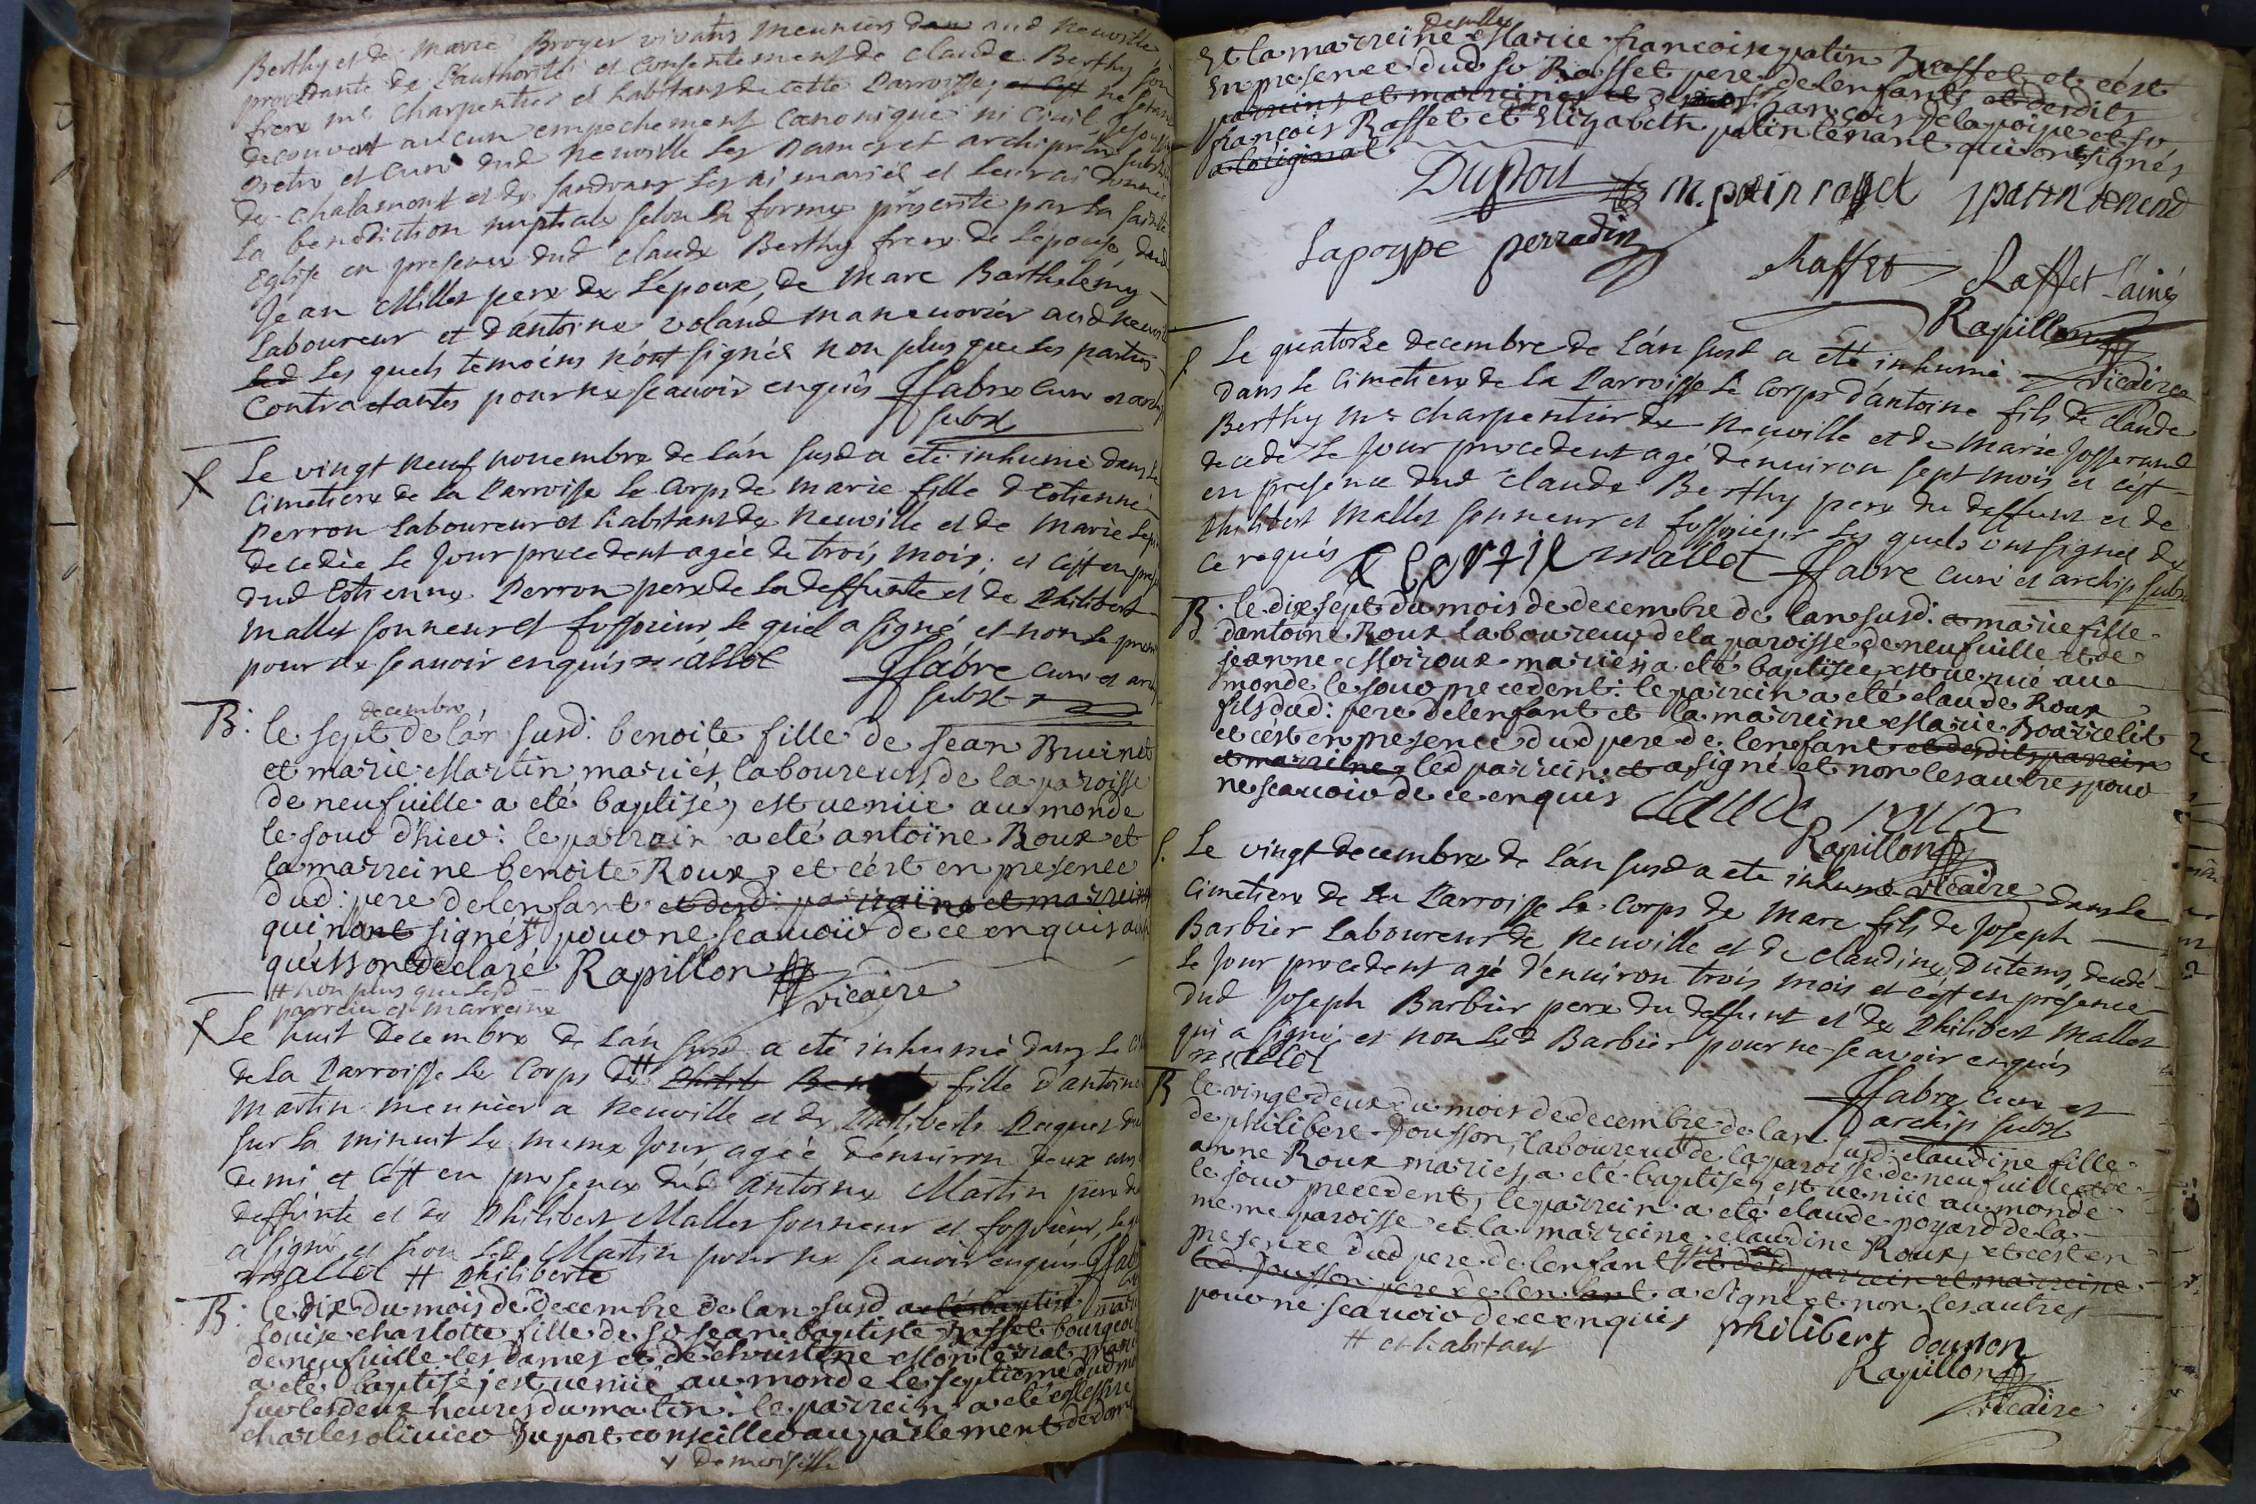 Berthy et de Marie Broyer vivants meuniers aud neuville
procedante de l'authorité et consentement de claude Berthy son
frere me charpentier et habitant de cette Parroisse, ne s'etant
decouvert aucun empechement canonique ni civil, je soussigné
Pretre et curé dud neuville les Dames et archiprêtre substitué
de chalamont et de sandrans les ai mariés et leur ai donné
la benediction nuptiale selon la forme prescrite par la sainte
Eglise en presence dud claude Berthy frere de l'epouse, dud
Jean Millet pere de l'epoux, de Marc Barthelemy
Laboureur et d'antoine voland manouvrier aud neuville
les quels temoins n'ont signés non plus que les parties
contractantes pour ne scavoir enquis ffabre curé et archip
subst
S Le vingt neuf novembre de l'an susd a eté inhumé dans le
cimetiere de la Parroisse le corps de marie fille d'Etienne
Perron laboureur et habitant de Neuville et de Marie
decedée le jour precedent agée de trois mois, et c'est en presence
dud Etienne Perron pere de la deffunte et de Philibert
mallet sonneur et fossoieur le quel a signé et non le premier
pour ne scavoir enquis mallet ffabre curé et arch
subst
B: le sept decembre de l'an susd: benoite fille de jean Bruinet
et marie Martin mariés laboureurs de la paroisse
de neufuille a eté baptisé, est venüe au monde
le jour d'hier: le parrain a eté antoine Roux et
la marreine benoite Roux, et c'est en presence
dud: pere de lenfant et desd: parraine et marreine
qui nont signés # pour ne scavoir de ce enquis ainsi
quils ont declaré Rapillon
vicaire
# non plus que lesd
parrein et marreine
S Le huit Decembre de l'an susd a eté inhumé dans le
de la Parroisse le corps de # fille d'antoine
Martin meunier a neuville et de Philiberte Paquet
sur la minuit le meme jour agée d'environ deux ans
demi et c'est en presence dud antoine Martin pere de
deffunte et de Philibert Mallet sonneur et fossoieur, le quel
a signé et non led Martin pour ne scavoir enquis ffabre
mallet # Philiberte
B: le dix du mois de decembre de lan susd a eté baptisé
louise charlotte fille de sr jean baptiste Raffet bourgeois
de neufuille les dames et de christine mariés
a eté baptisé, est venüe au monde le septieme dud mois
sur les deux heures du matin: le parrein a eté Messire
charles olivier Duport conseiller au parlement de
x demoiselle
Et la marreine demlle Marie francoise patin Raffet et c'est
En presence dud sr Raffet pere de lenfant et desdits
parreins et marreines et françois Delapoipe et sr
françois Raffet et Elizabeth patin tenant qui ont signés
a loriginal
Duport m. patin raffet patin tenend
Lapoype perradin
Raffet Raffet L'ainé
Rapillon
vicaire
S. Le quatorze decembre de l'an susd a eté inhumé
dans le cimetiere de la Parroisse le corps d'antoine fils de Claude
Berthy me charpentier de Neuville et de Marie Josserand
decedé le jour precedent agé d'environ sept mois et c'est
en presence dud claude Berthy pere du deffunt et de
Philibert Mallet sonneur et fossoieur les quels ont signés de
ce requis C Bertii mallet ffabre curé et archip subst
B: le dix sept du mois de decembre de lan susd: a marie fille
d'antoine Roux laboureur de la paroisse de neufuille et de
jeanne Moiroux mariés a eté baptisée, est venüe au
monde le jour precedent: le parrein a eté claude Roux
fils dud: pere de lenfant et la marreine Marie Bourcelit
et c'est en presence dud pere de lenfant et desdits parrein
et marreine, led parrein et a signé et non les autres pour
ne scavoir de ce enquis claude roux
Rapillon
vicaire
S. Le vingt decembre de l'an susd a eté inhumé dans le
cimetiere de la Parroisse le corps de marc fils de Joseph
Barbier laboureur de Neuville et de claudine Dutems, decedé
le jour precedent agé d'environ trois mois et c'est en presence
dud Joseph Barbier pere du deffunt et de Philibert Mallet
qui a signé et non led Barbier pour ne scavoir enquis
mallet
ffabre curé et
archip subst
B le vingt deux du mois de decembre de lan susd: claudine fille
de philibert Dousson, laboureur # de la paroisse de neufuille et de
anne Roux mariés, a eté baptisé, est venüe au monde
le jour precedent, le parrein a eté claude poyard de la
meme paroisse et la marreine claudine Roux, et c'est en
presence dud pere de lenfant qui et desd parrein et marreine
led Dousson pere de lenfant a signé et non les autres
pour ne scavoir de ce enquis philibert douson
# et habitant
Rapillon
vicaire